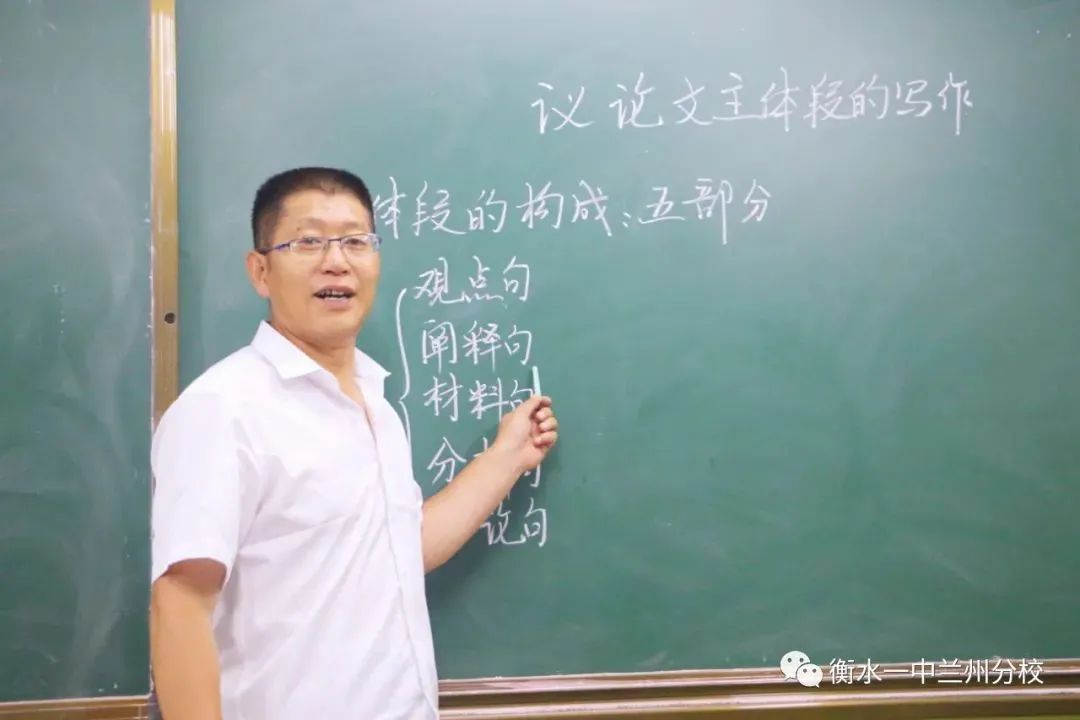 议论文主体段的写作
体段的构成：五部分
观点句
阐释句
材料句
分 句
论句
衡水一中兰州分校